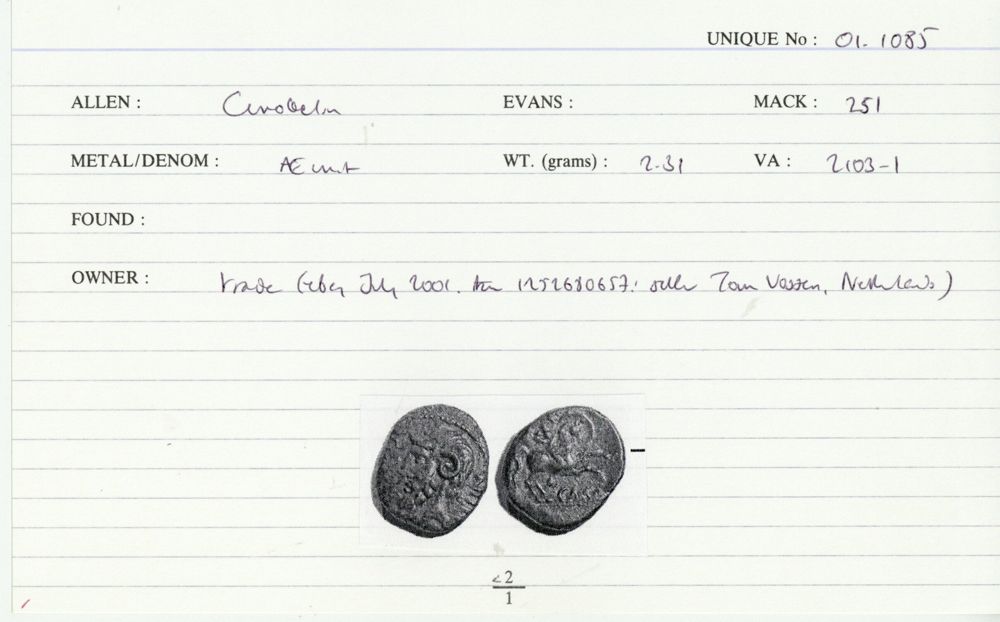 UNIQUE No : 01. 1085
ALLEN : Cunobelin EVANS : MACK : 251
METAL/DENOM : Æ unit WT. (grams) : 2.31 VA : 2103-1
FOUND :
OWNER : trade (ebay July 2001. item 1252680657: seller Tom Vossen, Netherlands)
<2
1